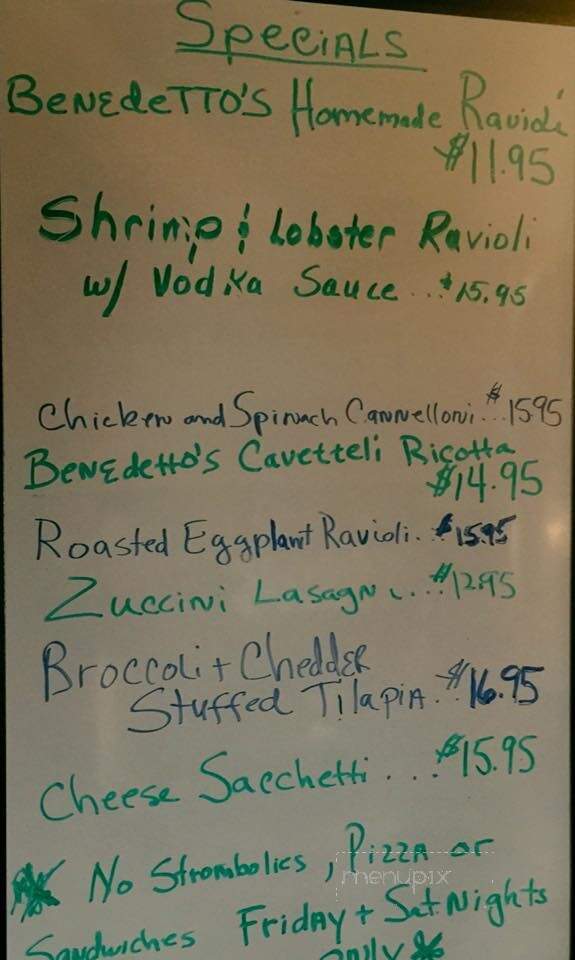 Specials
Benedetto's Homemade Ravioli
$11.95
Shrimp & Lobster Ravioli
w/ Vodka Sauce...$15.95
Chicken and Spinach Cannelloni...$15.95
Benedetto's Cavetteli Ricotta
$14.95
Roasted Eggplant Ravioli..$15.95
Zuccini Lasagn...$12.95
Broccoli + Chedder
Stuffed Tilapia..$16.95
Cheese Sacchetti...$15.95
* No Strombolies, Pizza or
menupix
Sandwiches Friday + Sat Nights
only *